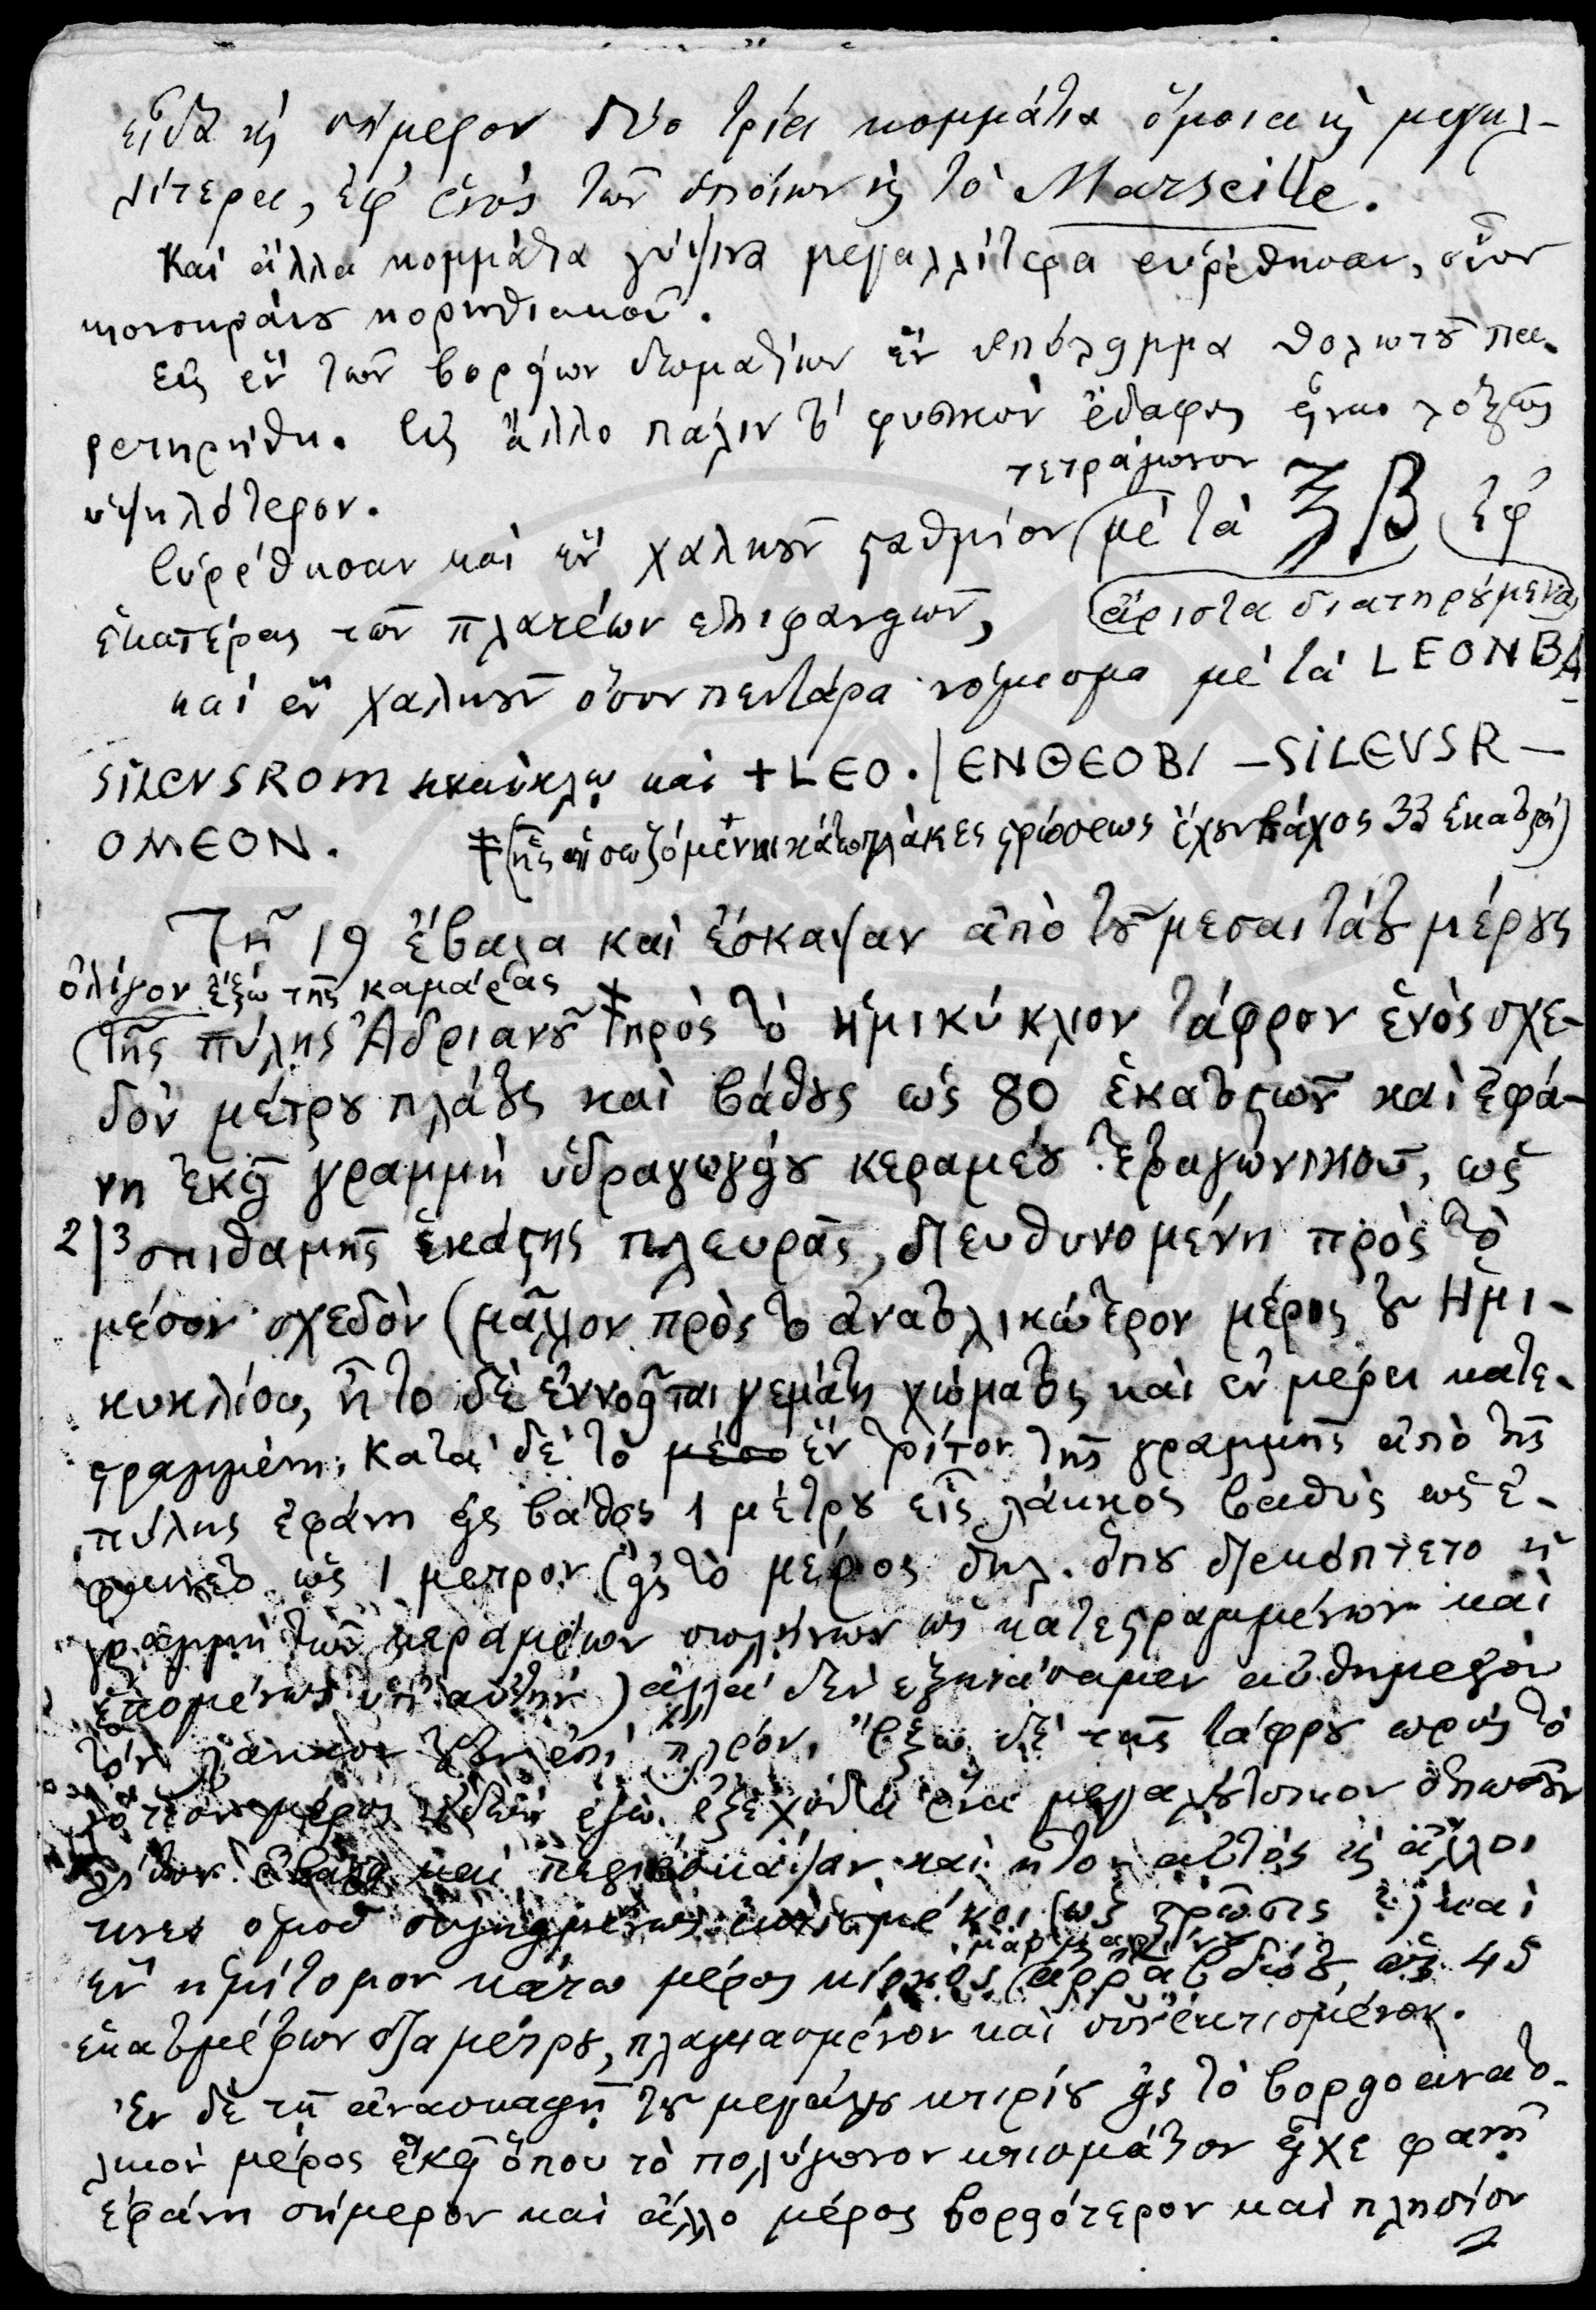 εἶδα κ̀ σήμερον δύο τρία κομμάτια ὅμοια κ̀ μεγαλ-
λίτερα, ἐφ' ἑνὸς τῶν ὁποίων κ̀ τὸ Marseille.
Καὶ ἄλλα κομμάτια γύψινα μεγαλλίτερα εὑρέθησαν, οἷον
κιονοκράνȣ κορινθιακοῦ.
Εἰς ἓν τῶν βορείων δωματίων ἓν ὑπόλειμμα θολωτȣ͂ πα-
ρετηρήθη. Εἰς ἄλλο πάλιν τὸ φυσικὸν ἔδαφος εἶναι λοξῶς
ὑψηλότερον.
τετράγωνον
Εὑρέθησαν καὶ ἓν χαλκȣ͂ν ϛαθμίον (μὲ τὰ Ξ Β ἐφ'
ἑκατέρας τῶν πλατέων ἐπιφανειῶν, ἄριστα διατηρȣ́μενα)
καὶ ἓν χαλκȣ͂ν ὅσον πεντάρα νόμισμα μὲ τὰ LEONBA
SILEVSROM κύκλῳ καὶ +LEO./ENΘEOBI - SILEVSR -
OMEON. ‡(τῆς αἱ σωζόμεναι κάτω πλάκες ϛρώσεως ἔχȣν πάχος 33 ἑκατοϛά)
Τῇ 19 ἔβαλα καὶ ἔσκαψαν ἀπὸ τȣ͂ μεσαιτάτȣ μέρȣς
ὀλίγον ἔξω τῆς καμάρας ‡
(τῆς πύλης Ἀδριανȣ͂ πρὸς τὸ ἡμικύκλιον τάφρον ἑνὸς σχε-
δὸν μέτρȣ πλάτȣς καὶ βάθȣς ὡς 80 ἑκατοϛῶν καὶ ἐφά-
νη ἐκεῖ γραμμὴ ὑδραγωγείȣ κεραμέȣ τετραγωνικοῦ, ὡς
2/3 σπιθαμῆς ἑκάϛης πλευρᾶς, διευθυνομένη πρὸς τὸ
μέσον σχεδὸν (μᾶλλον πρὸς τὸ ἀνατολικώτερον μέρος τȣ͂ Ἡμι-
κυκλίου, ἦτο δὲ ἐννοεῖται γεμάτη χώματος καὶ ἐν μέρει κατε-
ϛραμμένη. Κατὰ δὲ τὸ μέσο ἓν τρίτον τῆς γραμμῆς ἀπὸ τῆς
πύλης ἐφάνη εἰς βάθος 1 μέτρȣ εἷς λάκκος βαθὺς ὡς ἐ-
φαίνετο ὡς 1 μετρον (εἰς τὸ μέρος δηλ. ὅπȣ διεκόπτετο ἡ
γραμμὴ τῶν κεραμείων σωλήνων ὡς κατεϛραμμένων καὶ
ἑπομένως ὑπ' αὐτὴν) ἀλλὰ δὲν ἐξητάσαμεν αὐθημερὸν
τὸν λάκκον τȣ͂τον ἐπὶ πλέον. Ἔξω δὲ τῆς τάφρȣ πρὸς τὸ
νότιον μέρος ἐξέχοντα ἕνα μεγαλȣ́τσικον ὁπωσȣ͂ν
λίθον ἔβαλα καὶ περιέσκαψαν καὶ ἦτον αὐτὸς κ̀ ἄλλοι
τινες ὁμοῦ (ὡς ϛρῶσις ;) καὶ
μαρμαρίνȣ
ἓν ἡμίτομον κάτω μέρος κίονος (ἀρραβδώτȣ, ὡς 45
ἑκατομέτρων διαμέτρȣ, πλαγιασμένον καὶ συνεκτισμένον.
Ἐν δὲ τῇ ἀνασκαφῇ τȣ͂ μεγάλȣ κτιρίȣ εἰς τὸ βορειοανατο-
λικὸν μέρος ἐκεῖ ὅπου τὸ πολύγωνον κτισμάτιον εἶχε φανῆ
ἐφάνη σήμερον καὶ ἄλλο μέρος βορειότερον καὶ πλησίον